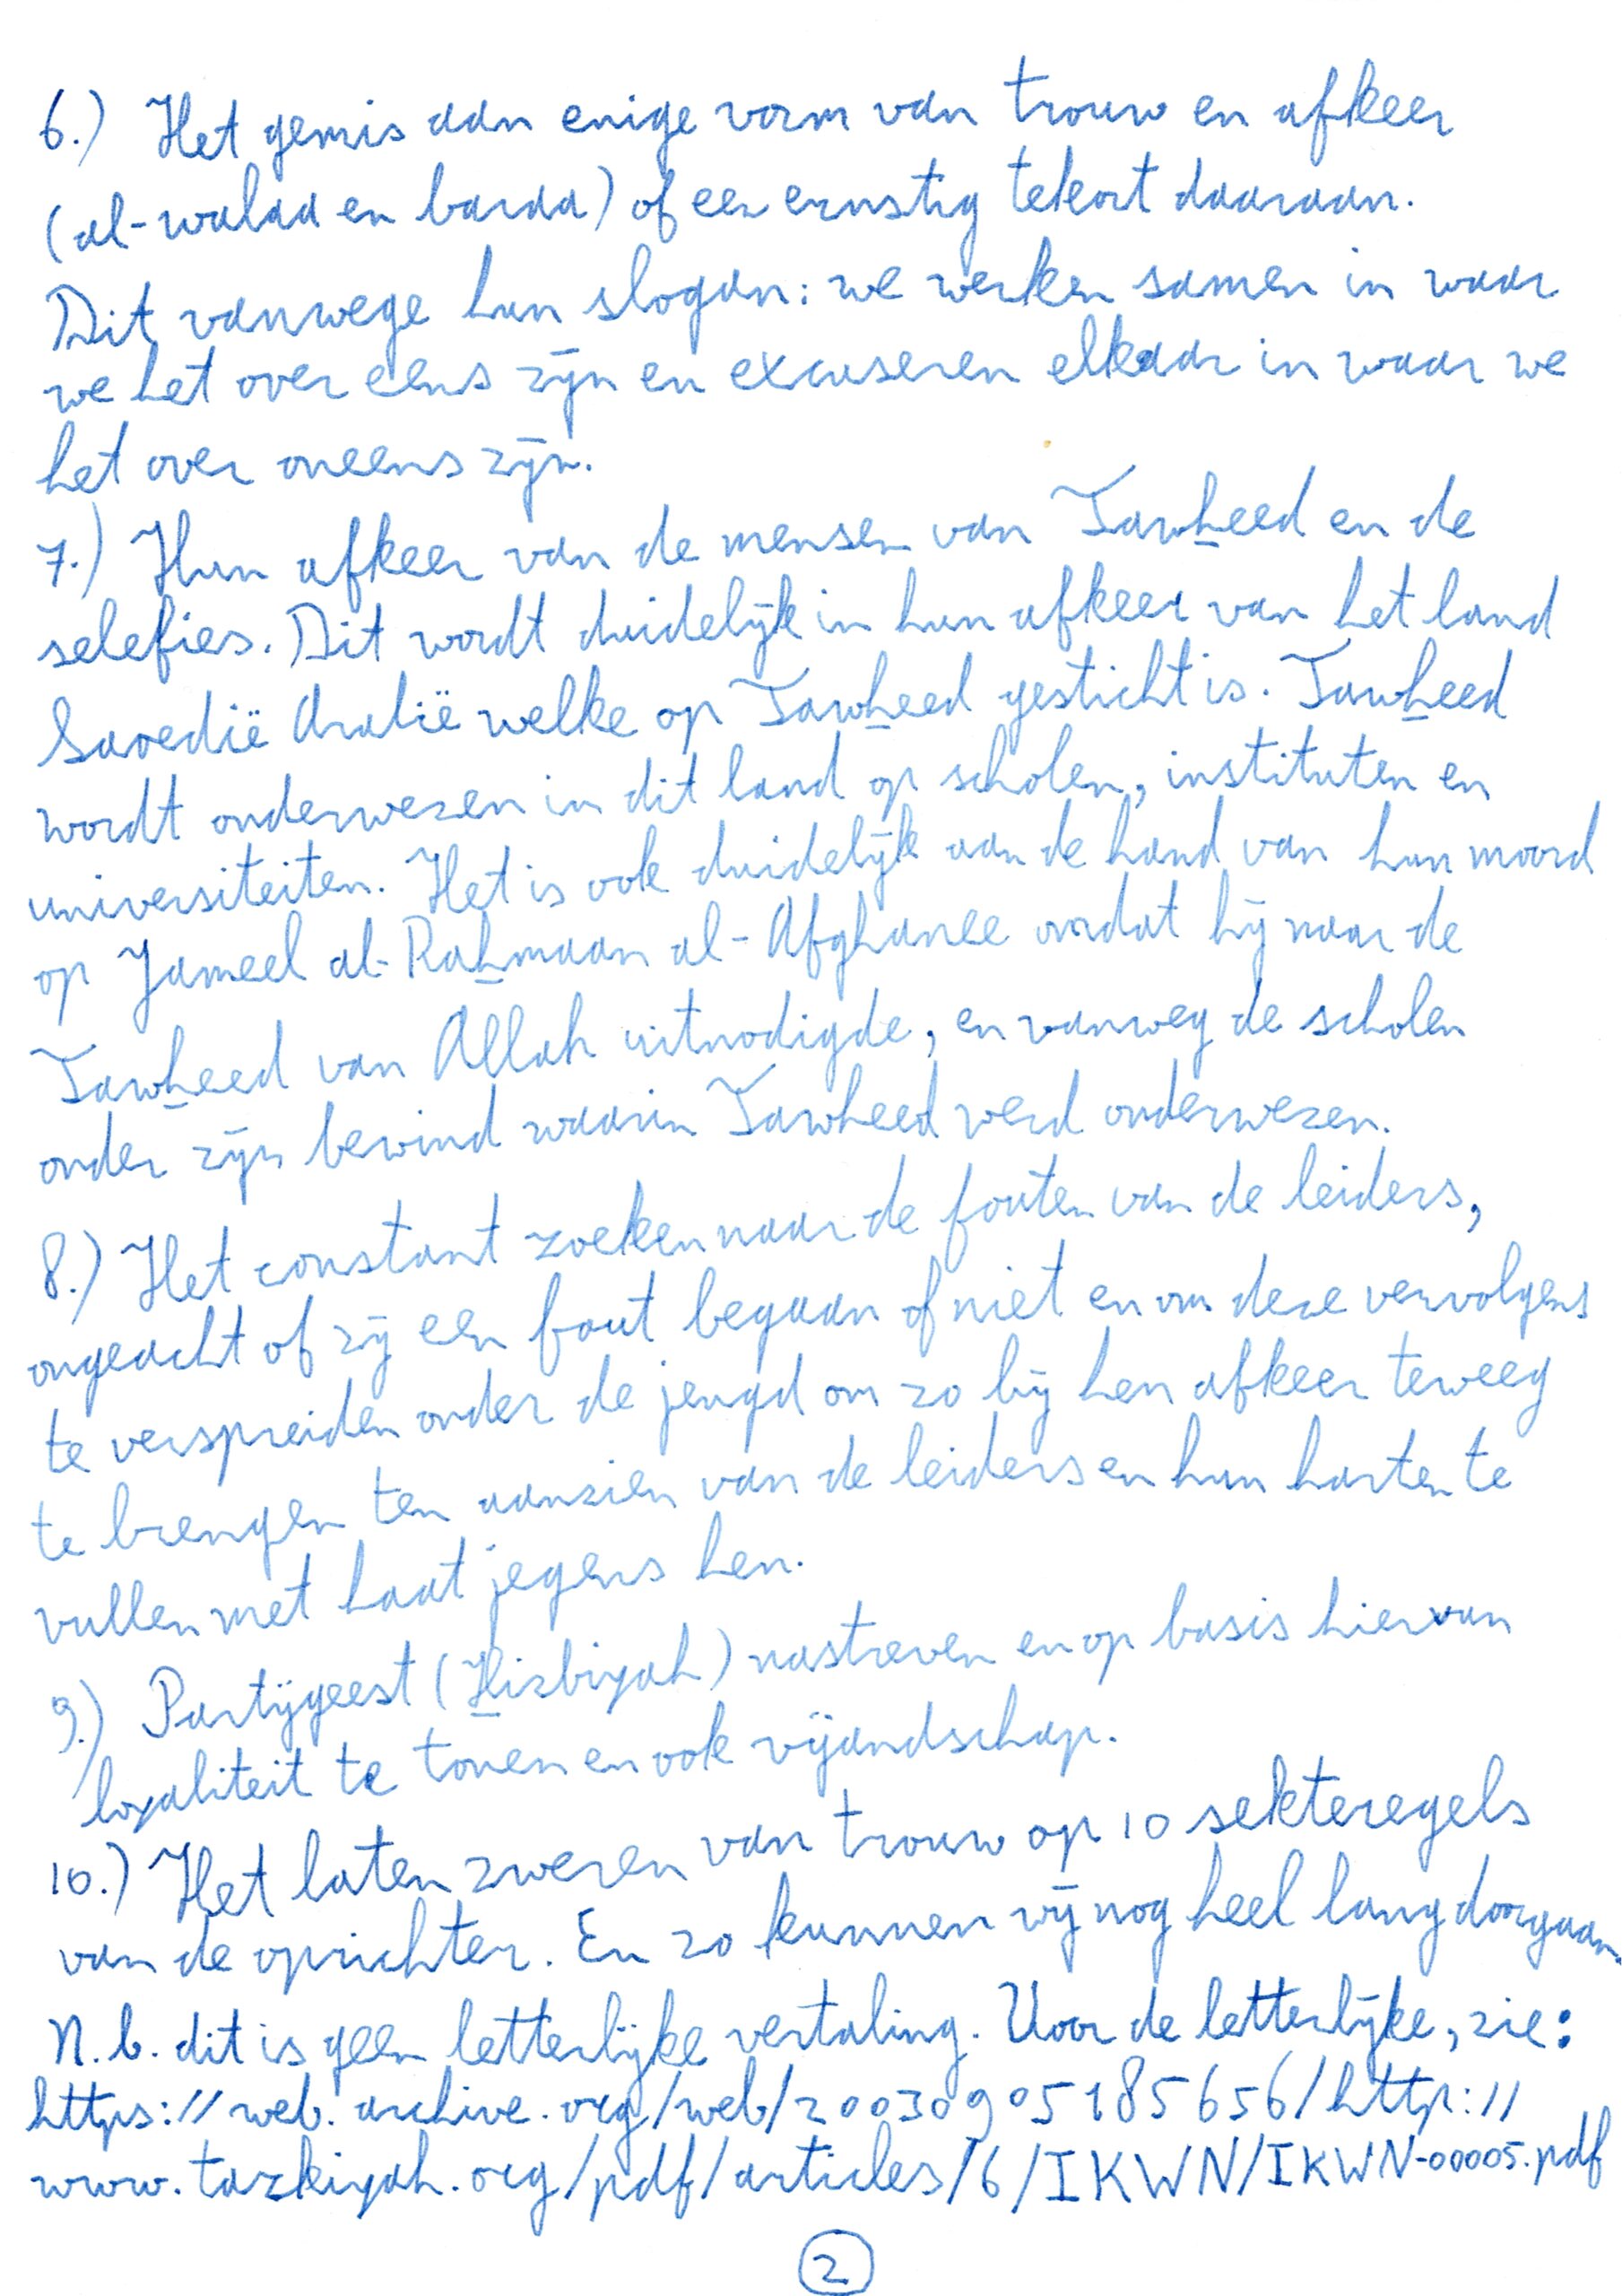 6.) Het gemis aan enige vorm van trouw en afkeer
(al-walaa en baraa) of een ernstig tekort daaraan.
Dit vanwege hun slogan: we werken samen in waar
we het over eens zijn en excuseren elkaar in waar we
het over oneens zijn.
7.) Hun afkeer van de mensen van Tawheed en de
selefies. Dit wordt duidelijk in hun afkeer van het land
Saoedië Arabië welke op Tawheed gesticht is. Tawheed
wordt onderwezen in dit land op scholen, instituten en
universiteiten. Het is ook duidelijk aan de hand van hun moord
op Jameel al-Rahmaan al-Afghanee omdat hij naar de
Tawheed van Allah uitnodigde, en vanweg de scholen
onder zijn bewind waarin Tawheed werd onderwezen.
8.) Het constant zoeken naar de fouten van de leiders,
ongeacht of zij een fout begaan of niet en om deze vervolgens
te verspreiden onder de jeugd om zo bij hen afkeer teweeg
te brengen ten aanzien van de leiders en hun harten te
vullen met haat jegens hen.
9.) Partijgeest (Hizbiyah) nastreven en op basis hiervan
loyaliteit te tonen en ook vijandschap.
10.) Het laten zweren van trouw op 10 sekteregels
van de oprichter. En zo kunnen wij nog heel lang doorgaan.
N.b. dit is geen letterlijke vertaling. Voor de letterlijke, zie:
https://web.archive.org/web/20030905185656/http://
www.tazkiyah.org/pdf/articles/6/IKWN/IKWN-00005.pdf
2